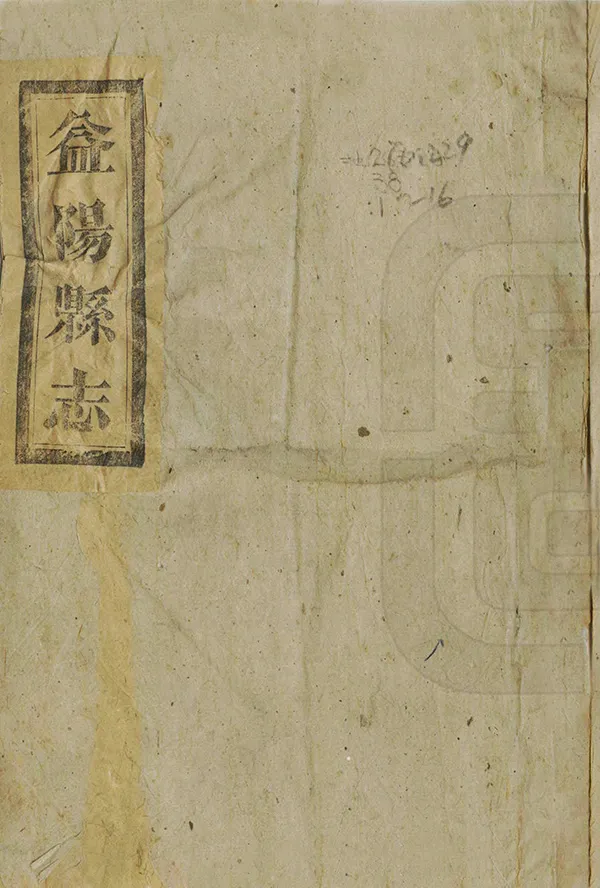 益陽縣志
38
1~16